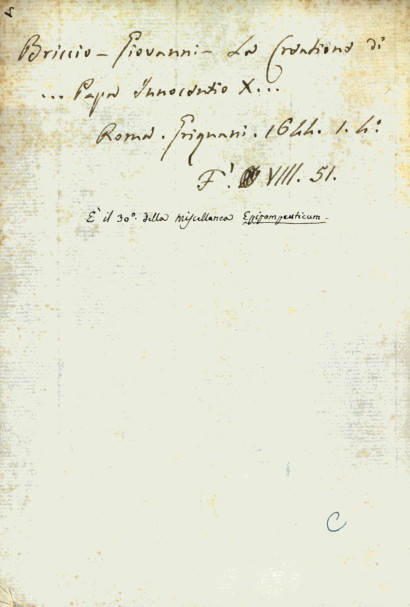 Briccio - Giovanni - La Creatione di
... Papa Innocentio X...
Roma. Grignani. 1644. 1. 4:
F. VIII. 51.
È il 30º. della Miscellanea Epipompeuticum.
C